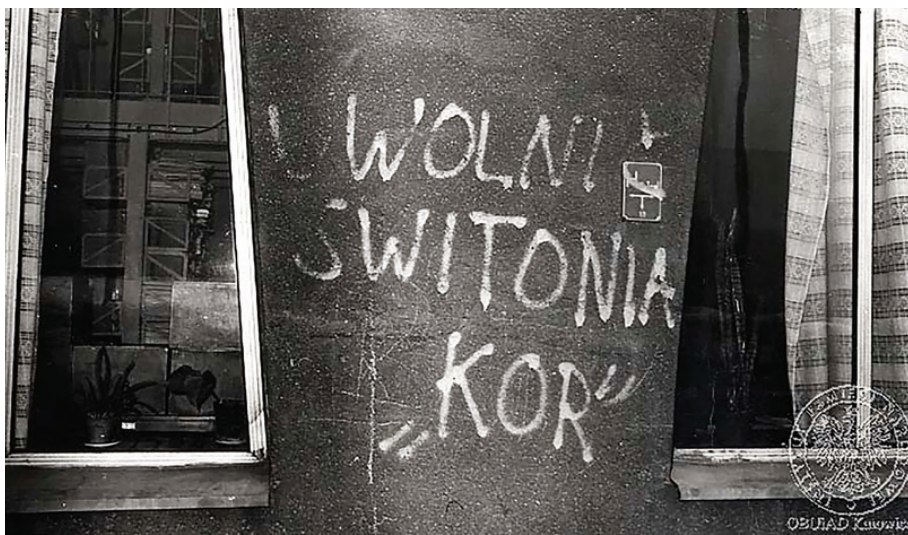 UWOLNIĆ
ŚWITONIA
„KOR”
OBUiAD Katowice